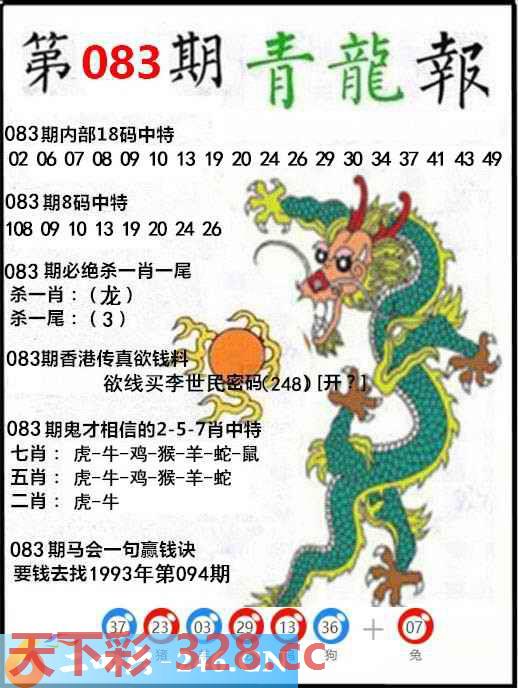 第083期青龍報
083期内部18码中特
02 06 07 08 09 10 13 19 20 24 26 29 30 34 37 41 43 49
083期8码中特
108 09 10 13 19 20 24 26
083期必绝杀一肖一尾
杀一肖：（龙）
杀一尾：（3）
083期香港传真欲钱料
欲线买李世民密码(248)[开?]
083期鬼才相信的2-5-7肖中特
七肖：虎-牛-鸡-猴-羊-蛇-鼠
五肖：虎-牛-鸡-猴-羊-蛇
二肖：虎-牛
083期马会一句赢钱诀
要钱去找1993年第094期
37 23 03 29 13 36 + 07
猪 狗 兔
天下彩 328.cc